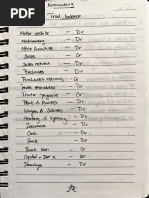 Accounting
Trial balance
Motor vehicle - Dr
Machinery - Dr
Office furniture - Dr
Sales - Cr
Sales returns - Dr
Purchases - Dr
Purchases returns - Cr
- Dr
Trade payable - Cr
Rent & - Dr
Wages & Salaries - Dr
Heating & lighting - Dr
Insurance - Dr
Cash - Dr
Bank - Dr
Bank loan - Cr
Capital - - Cr
Drawings - Dr